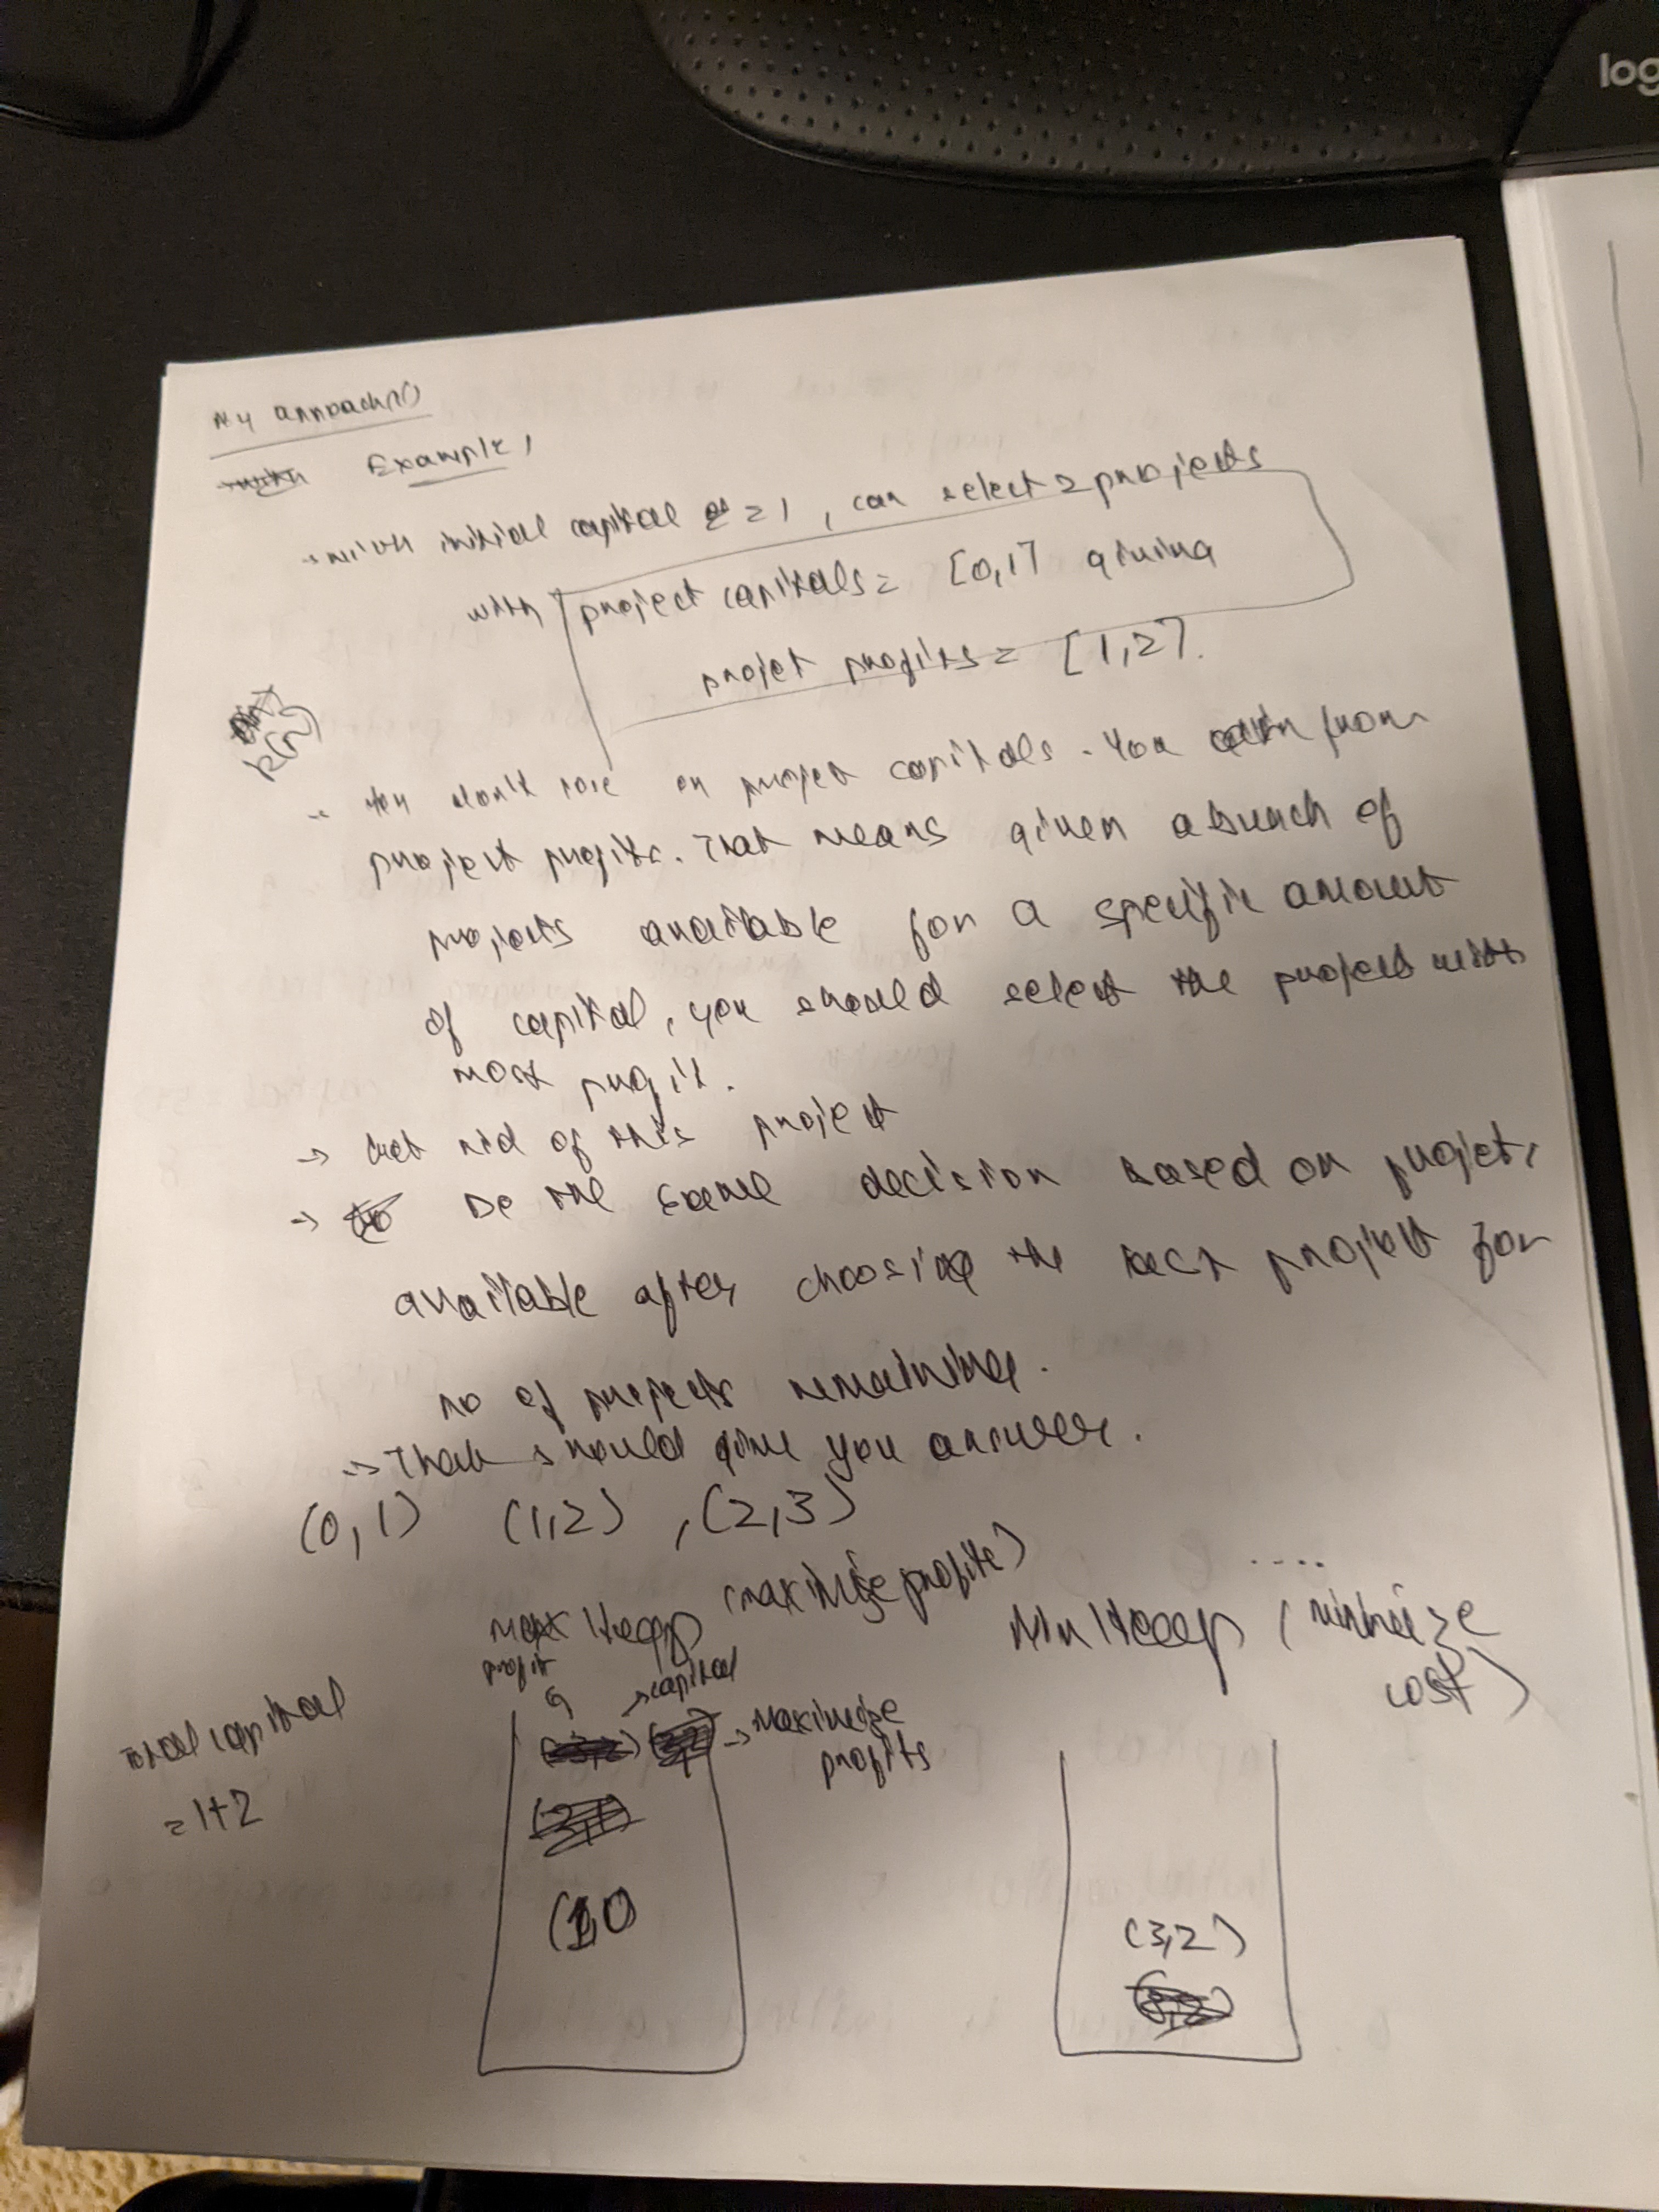 log
My approach()
Example,
→ with initial capital = 1, can select 2 projects
with project capitals = [0,1] giving
projet profits = [1,2].
k(n)
you don't lose on project capitals. You earn from
project profits. That means given a bunch of
projects available for a specific amount
of capital, you should select the project with
most profit.
→ Get rid of this project
→ Do the same decision based on project,
available after choosing the best project for
no of projects remaining.
→ That should give you answer.
(0,1) (1,2) , (2,3)
....
Max Heap (maximize profits)
Min Heap (minimize
cost)
profit
→ capital
→ Maximize
profits
Total capital
= 1+2
(3,2)